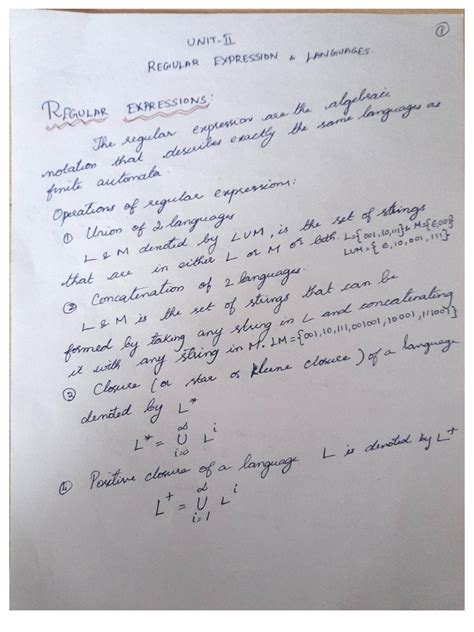 ①
UNIT-II
REGULAR EXPRESSION & LANGUAGES.
REGULAR EXPRESSIONS:
The regular expression are the algebraic
notation that describes exactly the same languages as
finite automata.
Operations of regular expressions:
① Union of 2 languages
L & M denoted by LUM, is the set of strings
that are in either L or M or both. L={001,10,111} & M={ε,001}
LUM={ε,10,001,111}
③ Concatenation of 2 languages.
L & M is the set of strings that can be
formed by taking any string in L and concatenating
it with any string in M. LM={001,10,111,001001,10001,111001}
② Closure (or star or kleene closure) of a language
denoted by L*
L* = ∞ ∪ i=0 L^i
④ Positive closure of a language L is denoted by L^+
L^+ = ∞ ∪ i=1 L^i